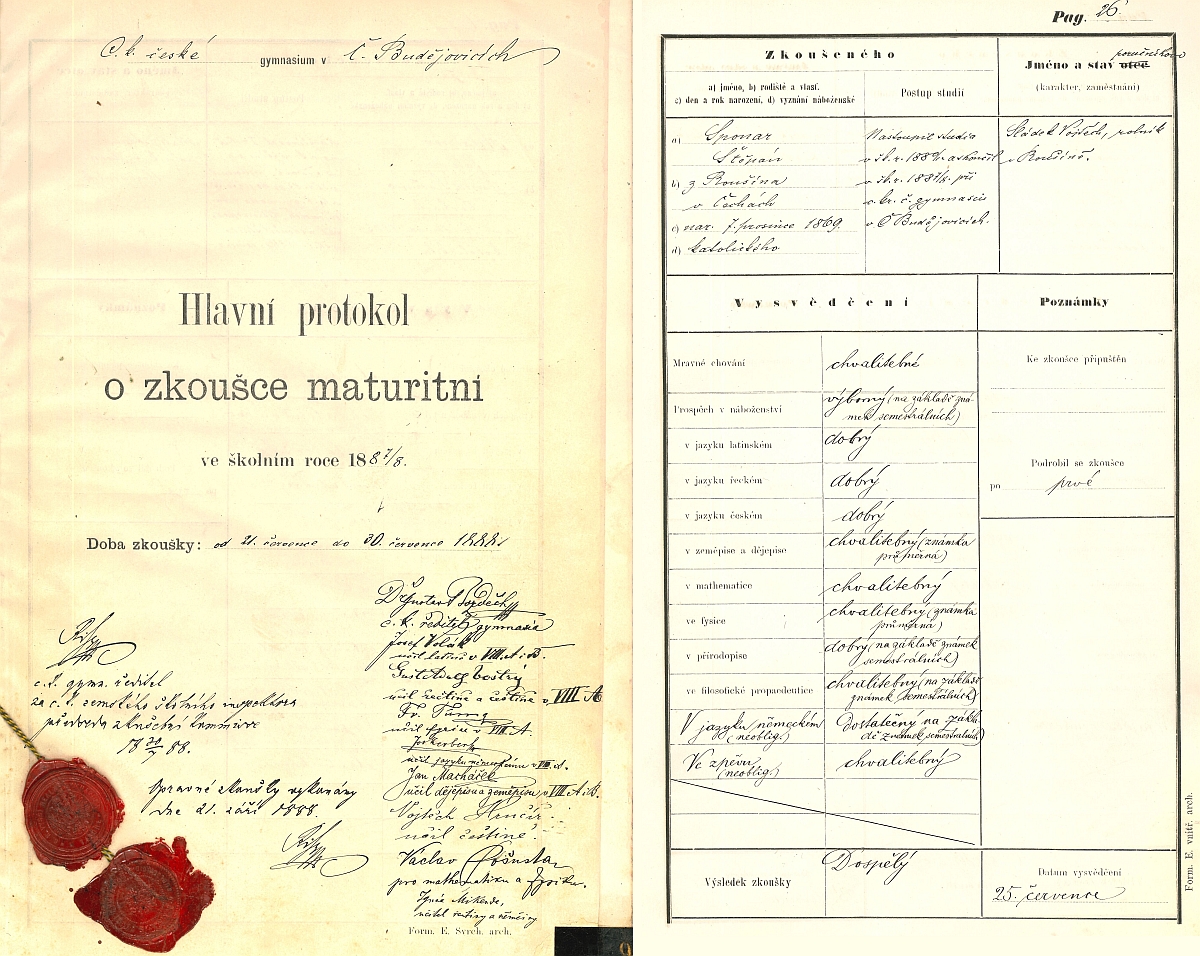 C. k. české gymnasium v Č. Budějovicích
Hlavní protokol
o zkoušce maturitní
ve školním roce 1887/8.
Doba zkoušky: od 21. července do 30. července 1888
c. k. ředitel gymnasia
Josef Volák
učil latině v VIII. A i B.
učil řečtině a češtině v VIII A
učil v VIII. A.
učil jazyku německému v VIII. A.
Jan Macháček
učil dějepisu a zeměpisu v VIII A i B.
Vojtěch
učil češtině.
Václav
pro mathematiku a fysiku.
c. k. gymn. ředitel
za c. k. zemského školního inspektora
předseda zkušební kommisse
18 30/7 88.
Opravné zkoušky vykonány
dne 21. září 1888.
Form. E. Svrch. arch.
Pag. 26.
Zkoušeného
a) jméno, b) rodiště a vlasť.
c) den a rok narození, d) vyznání náboženské
Postup studií
poručníkovo
Jméno a stav otce
(karakter, zaměstnání)
a) Sponar
Štěpán
b) z Roušína
v Čechách
c) nar. 7. prosince 1869.
d) katolického
Nastoupil studia
v šk. r. a skončil
v šk. r. 1887/8. při
c. kr. č. gymnasiu
v Č Budějovicích.
Sládek Vojtěch, rolník
v Roušíně.
Vysvědčení
Poznámky
Mravné chování chvalitebné
Prospěch v náboženství výborný (na základě zná-
mek semestrálních)
v jazyku latinském dobrý
v jazyku řeckém dobrý
v jazyku českém dobrý
v zeměpise a dějepise chvalitebný (známka
průměrná)
v mathematice chvalitebný
ve fysice chvalitebný (známka
průměrná)
v přírodopise dobrý (na základě známek
semestrálních)
ve filosofické propaedeutice chvalitebný (na základě
známek semestrálních)
V jazyku německém Dostatečný na zákla-
(neoblig.) dě známek semestrálních)
Ve zpěvu chvalitebný
(neoblig.)
Ke zkoušce připuštěn
Podrobil se zkoušce
po prvé
Výsledek zkoušky Dospělý
Datum vysvědčení
25. července
Form. E. vnitř. arch.